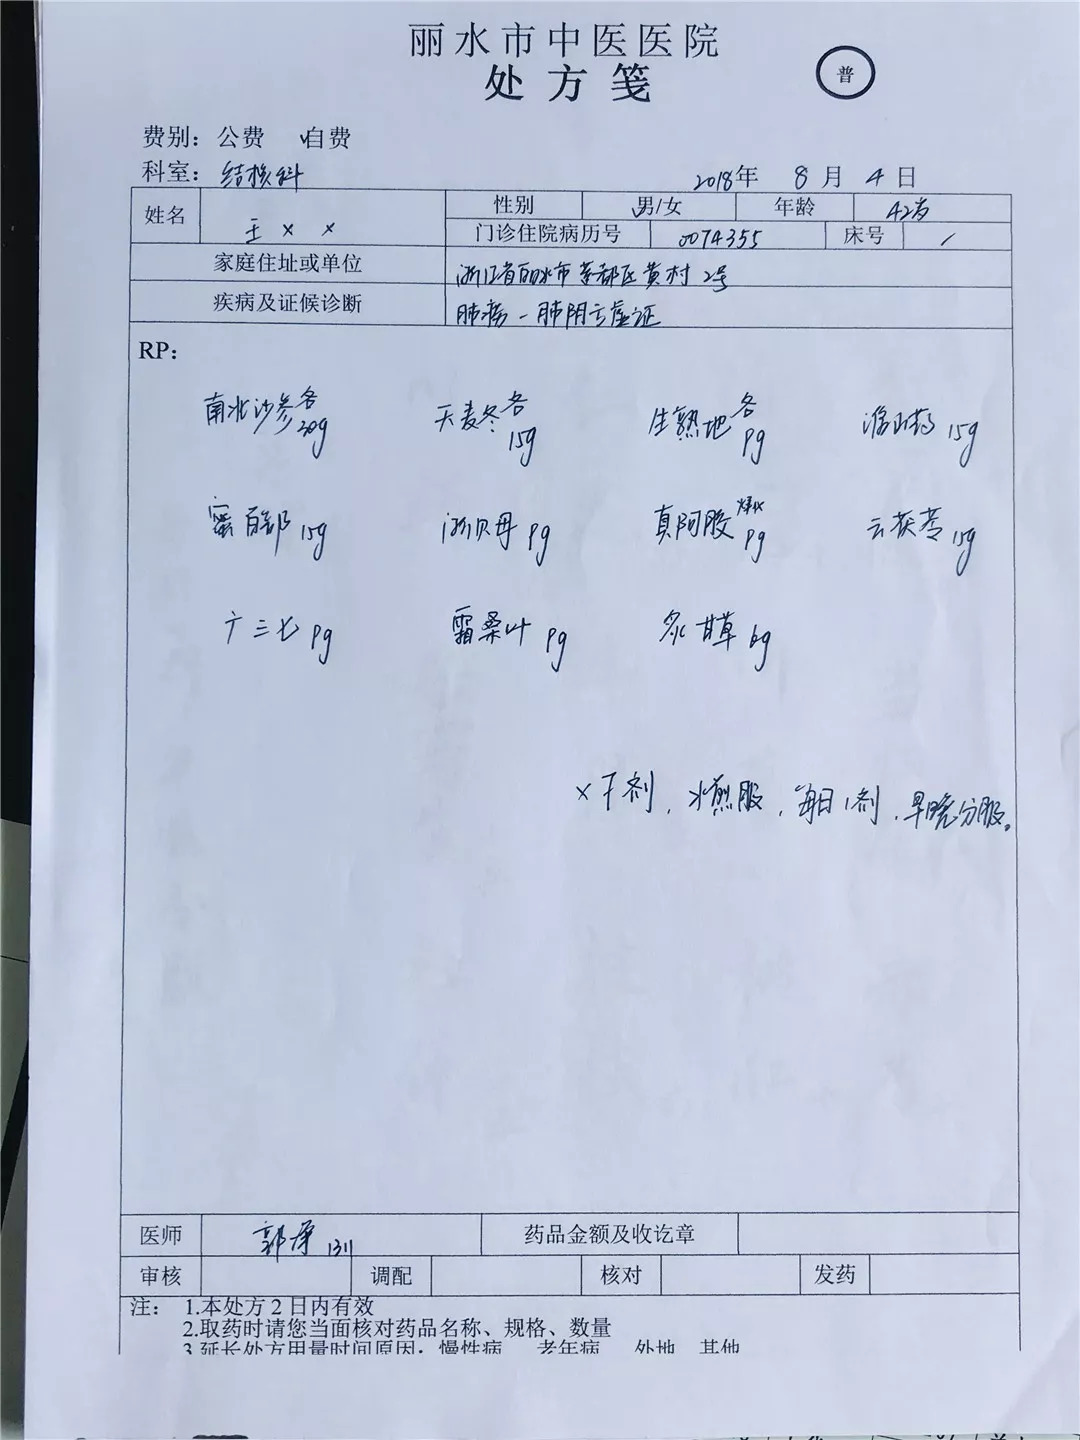 丽水市中医医院
处方笺
普
费别： 公费 √自费
科室： 结核科 2018年 8月 4日
姓名 王×× 性别 男/女 年龄 42岁
门诊住院病历号 0074355 床号 /
家庭住址或单位 浙江省丽水市莲都区黄村2号
疾病及证候诊断 肺痨-肺阴亏虚证
RP：
南北沙参各20g 天麦冬各15g 生熟地各9g 淮山药15g
蜜百部15g 浙贝母9g 真阿胶烊化9g 云茯苓15g
广三七9g 霜桑叶9g 炙甘草6g
×7剂，水煎服，每日1剂，早晚分服。
医师 郭 1311 药品金额及收讫章
审核 调配 核对 发药
注： 1.本处方2日内有效
2.取药时请您当面核对药品名称、规格、数量
3.延长处方用量时间原因：慢性病 老年病 外地 其他